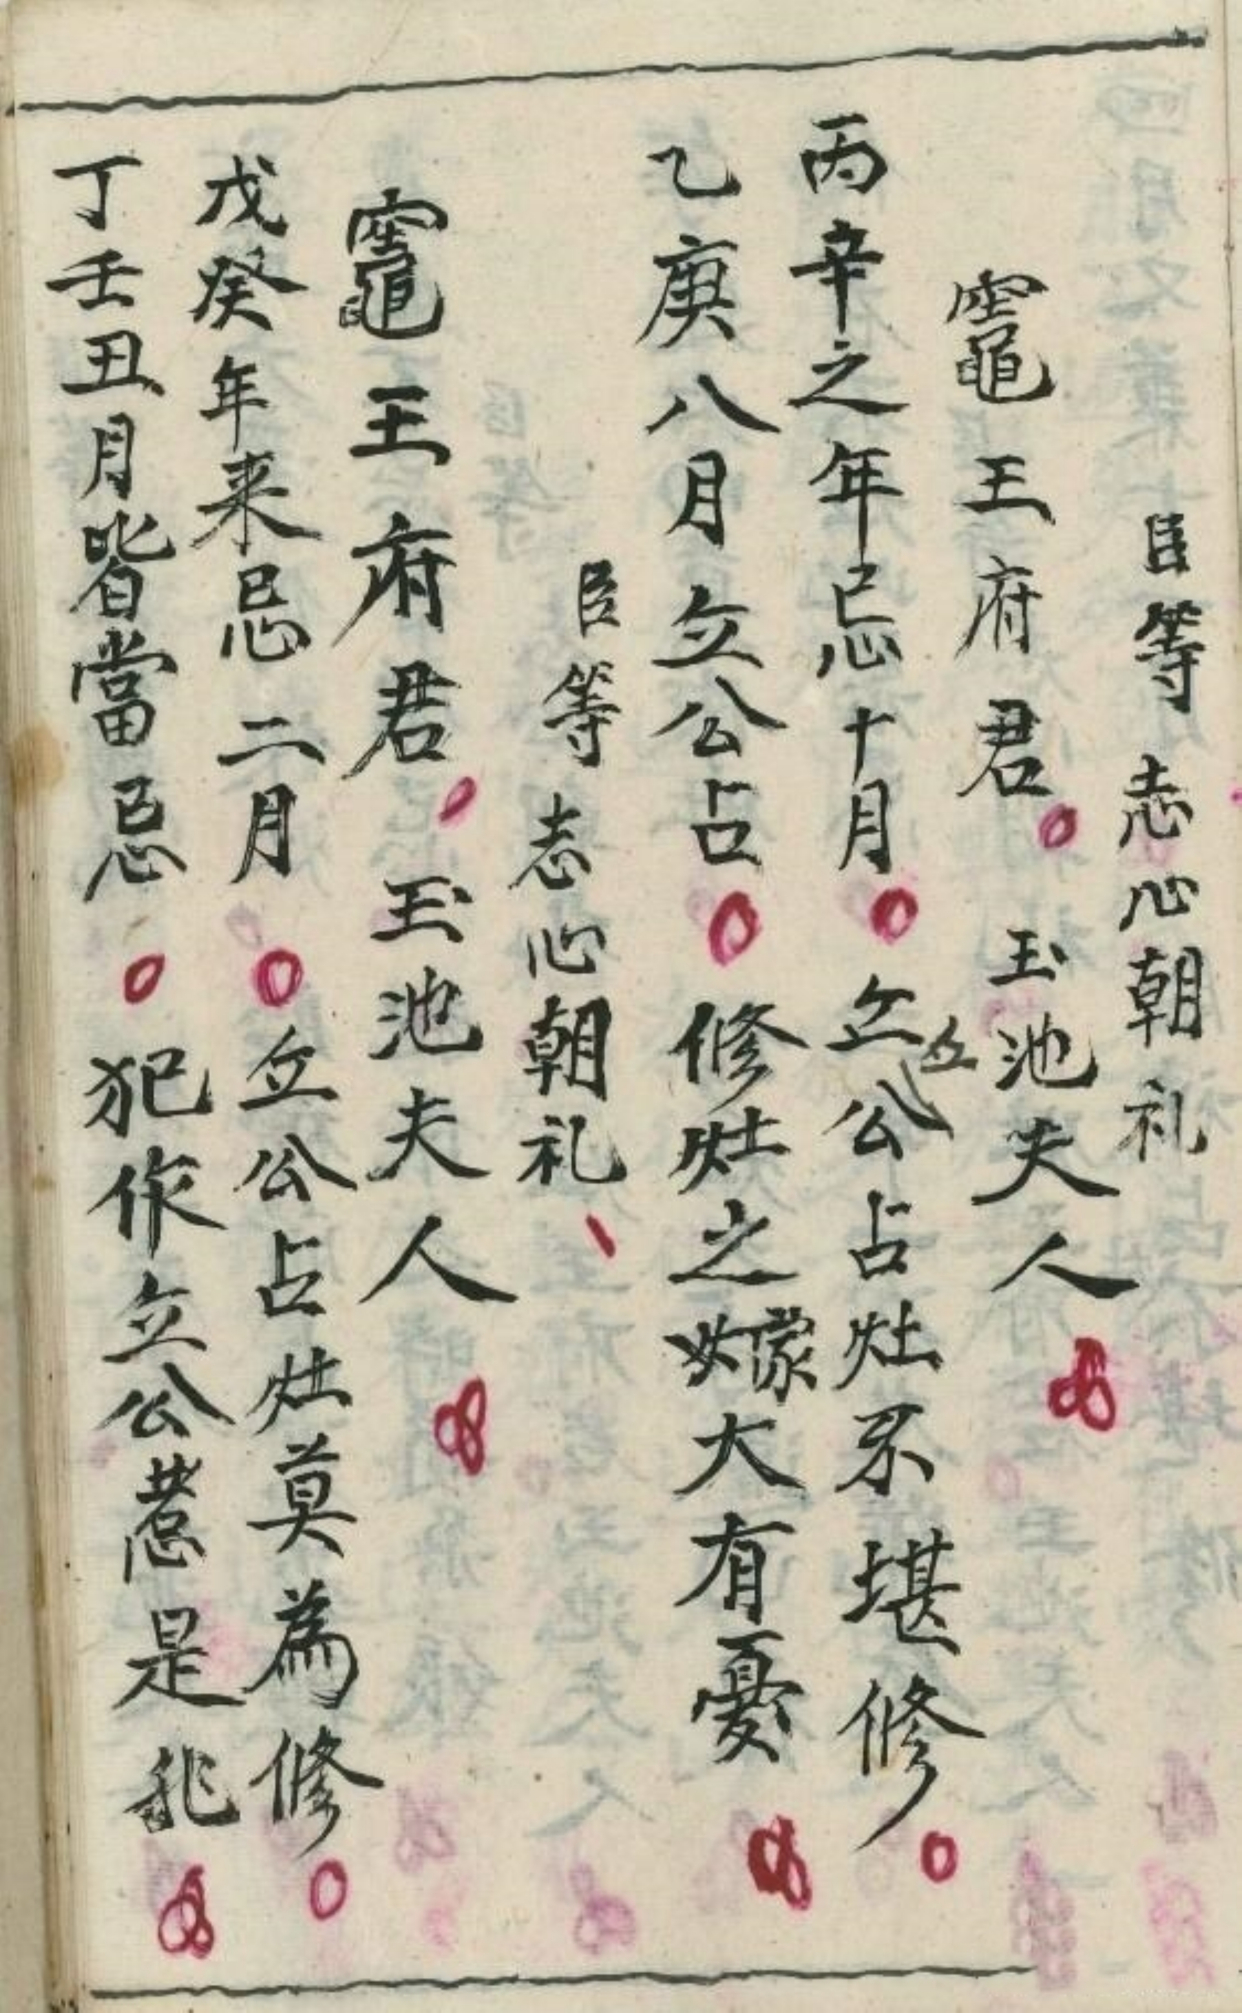 臣等志心朝礼
竈王府君玉池夫人
丙辛之年忌十月立公占灶不堪修
立
乙庚八月立公占修灶之嫁大有憂
臣等志心朝礼
竈王府君玉池夫人
戊癸年来忌二月立公占灶莫為修
丁壬丑月皆當忌犯作立公惹是非